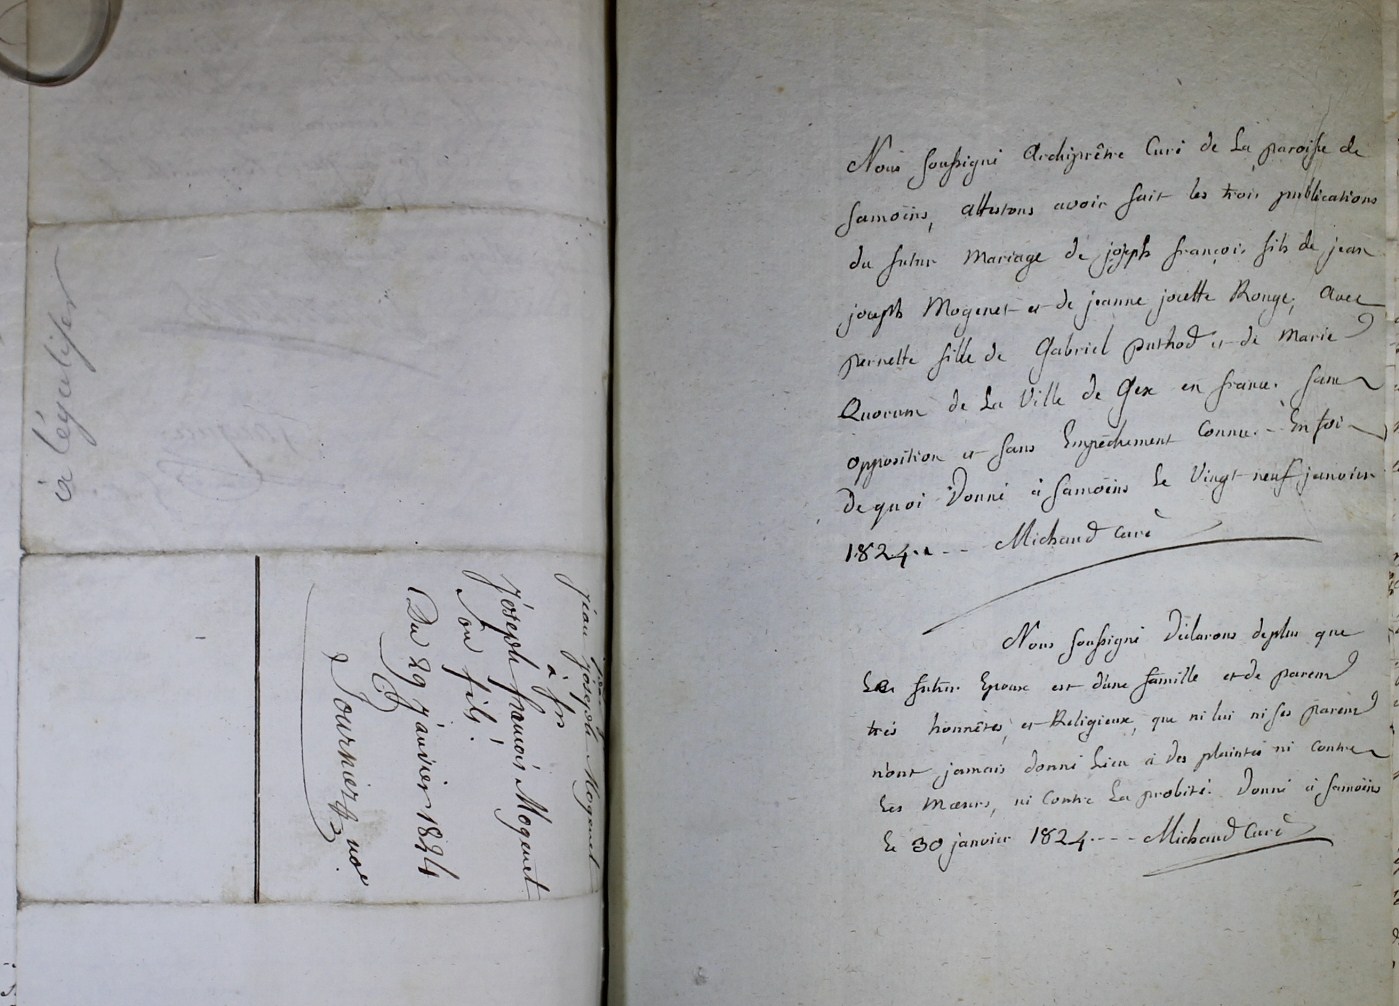 à légaliser
jean joseph Mogenet
à
joseph francois Mogenet
son fils.
Du 29 janvier 1824
Tournier
Nous soussigné Archiprêtre Curé de La paroisse de
samoëns, attestons avoir fait les trois publications
du futur Mariage de joseph françois fils de jean
joseph Mogenet et de jeanne josette Ronge, avec
pernette fille de Gabriel puthod et de Marie
Quorum de La Ville de Gex en france. sans
opposition et sans Empêchement Connu. - En foi
De quoi Donné à samoëns Le Vingt neuf janvier
1824... - - Michaud curé
Nous soussigné Déclarons deplus que
Le futur Epoux est d'une famille et de parens
très honnêtes, et Religieux, que ni lui ni ses parens
n'ont jamais donné Lieu à des plaintes ni contre
Les Mœurs, ni Contre La probité. Donné à samoëns
le 30 janvier 1824 - - - - Michaud Curé